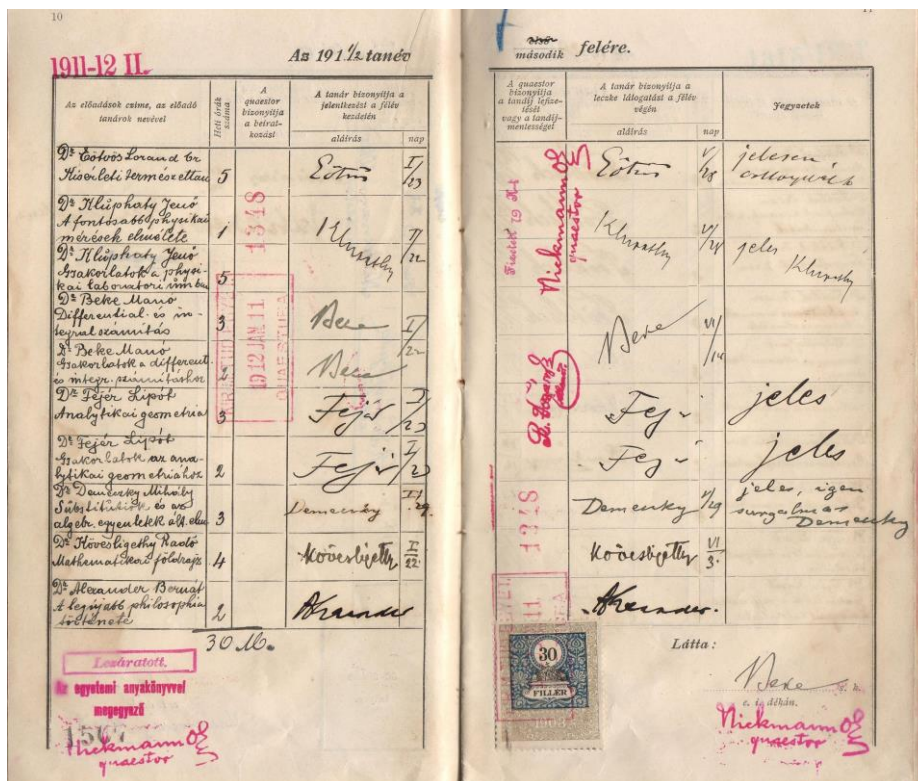 10
1911-12 II.
Az 1911/12 tanév
Az előadások czíme, az előadó
tanárok nevével
Heti órák
száma
A
quaestor
bizonyítja
a beirat-
kozást
A tanár bizonyítja a
jelentkezést a félév
kezdetén
aláírás
nap
Dr Eötvös Loránd br
Kísérleti természettan 5 Eötvös I/23
Dr Klupháty Jenő
A fontosabb physikai
mérések elmélete 1 Klupathy
Dr Klupháty Jenő
Gyakorlatok a physi-
kai laboratoriumban 5
Dr Beke Manó
Differential- és in-
tegral számítás 3 Beke I/22
Dr Beke Manó
Gyakorlatok a different.
és integr. számításhoz 2 Beke
Dr Fejér Lipót
Analytikai geometria 3 Fejér
Dr Fejér Lipót
Gyakorlatok az ana-
lytikai geometriához 2 Fejér
Dr Demeczky Mihály
Substitutiók és az
algebr. egyenletek ált. elm. 3 Demeczky
Dr Kövesligethy Radó
Mathematikai földrajz 4 Kövesligethy I/22.
Dr Alexander Bernát
A legújabb philosophia
története 2 Alexander
30
1348
1912 JAN 11
QUAESTURA
Lezáratott.
Az egyetemi anyakönyvvel
megegyező
Nickmann
quaestor
első
második felére.
A quaestor
bizonyítja
a tandíj lefize-
tését
vagy a tandíj-
mentességet
A tanár bizonyítja a
leczke látogatást a félév
végén
aláírás
nap
Jegyzetek
Fizetett 79 K
Nickmann
quaestor
Eötvös V/28 jelesen
Klupathy jeles
Klupathy
Beke VI/14
Fejér jeles
Fejér jeles
Demeczky V/29 jeles, igen
szorgalmas
Demeczky
Kövesligethy VI/3.
Alexander.
1348
30
FILLÉR
Látta:
Beke
e. i. dékán.
Nickmann
quaestor